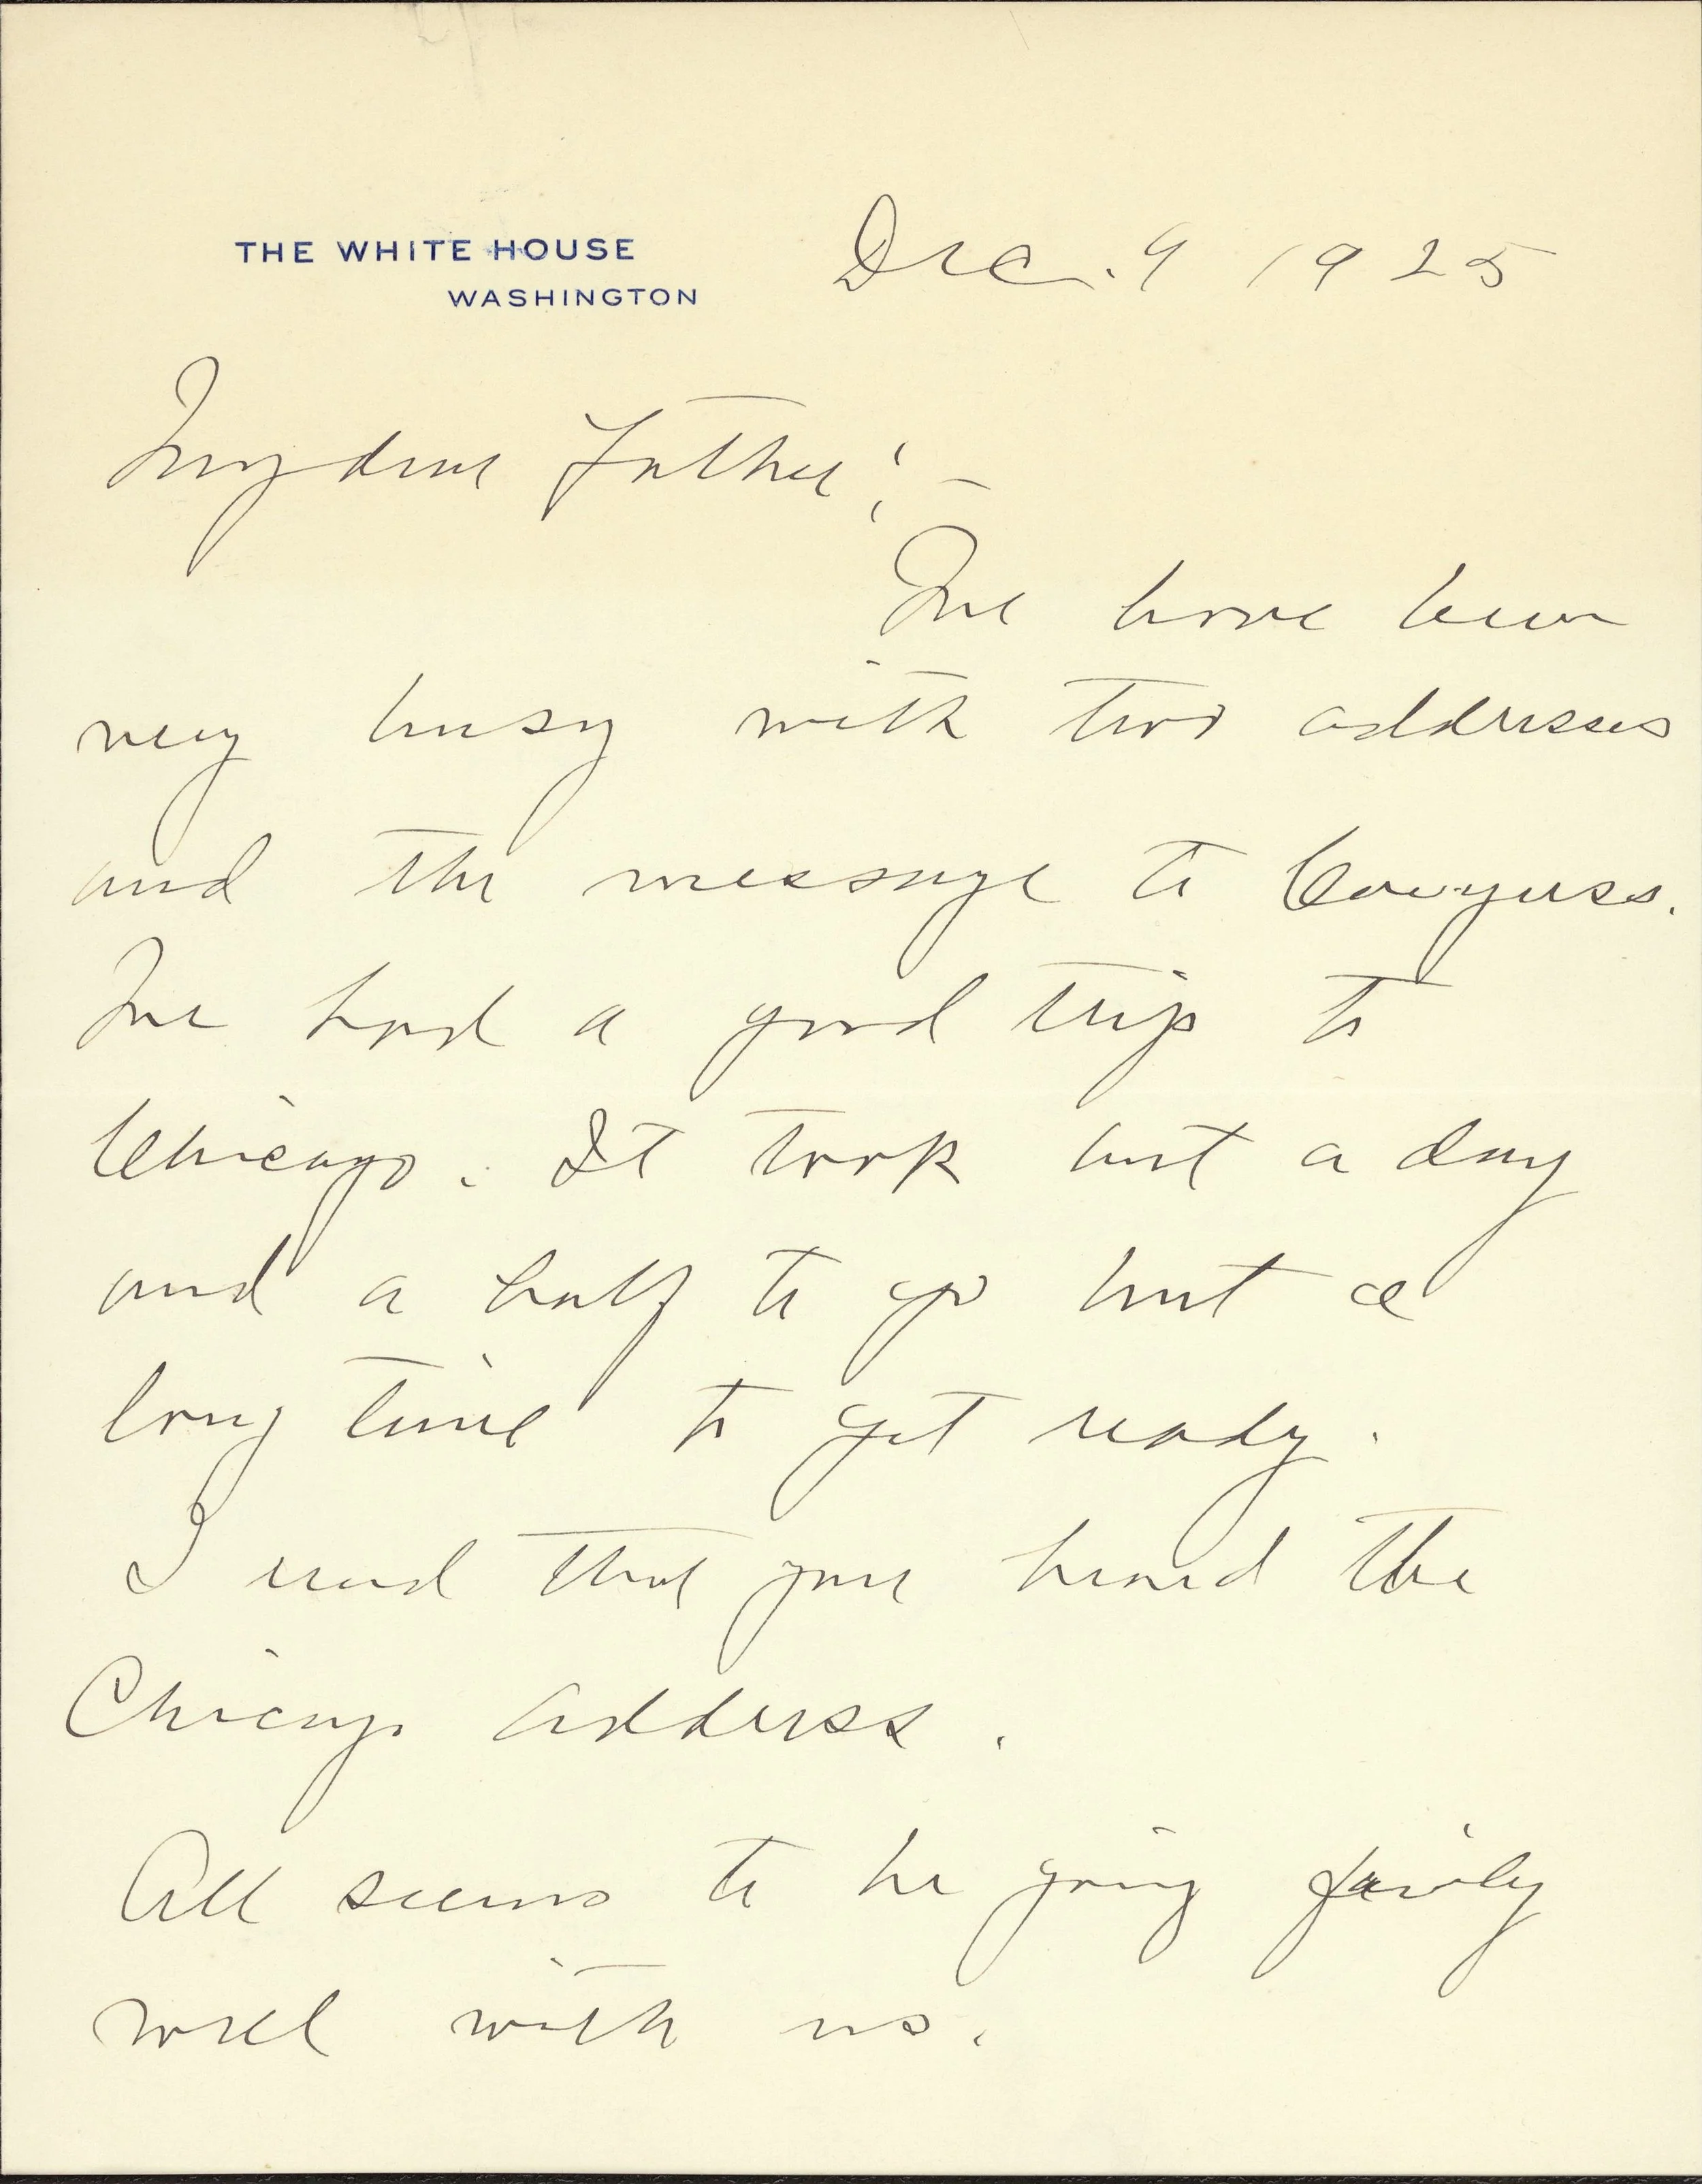 THE WHITE HOUSE
WASHINGTON
Dec. 9 1925
My dear Father:-
We have been
very busy with two addresses
and the message to Congress.
We had a good trip to
Chicago. It took but a day
and a half to go but a
long time to get ready.
I read that you heard the
Chicago address.
All seems to be going fairly
well with us.